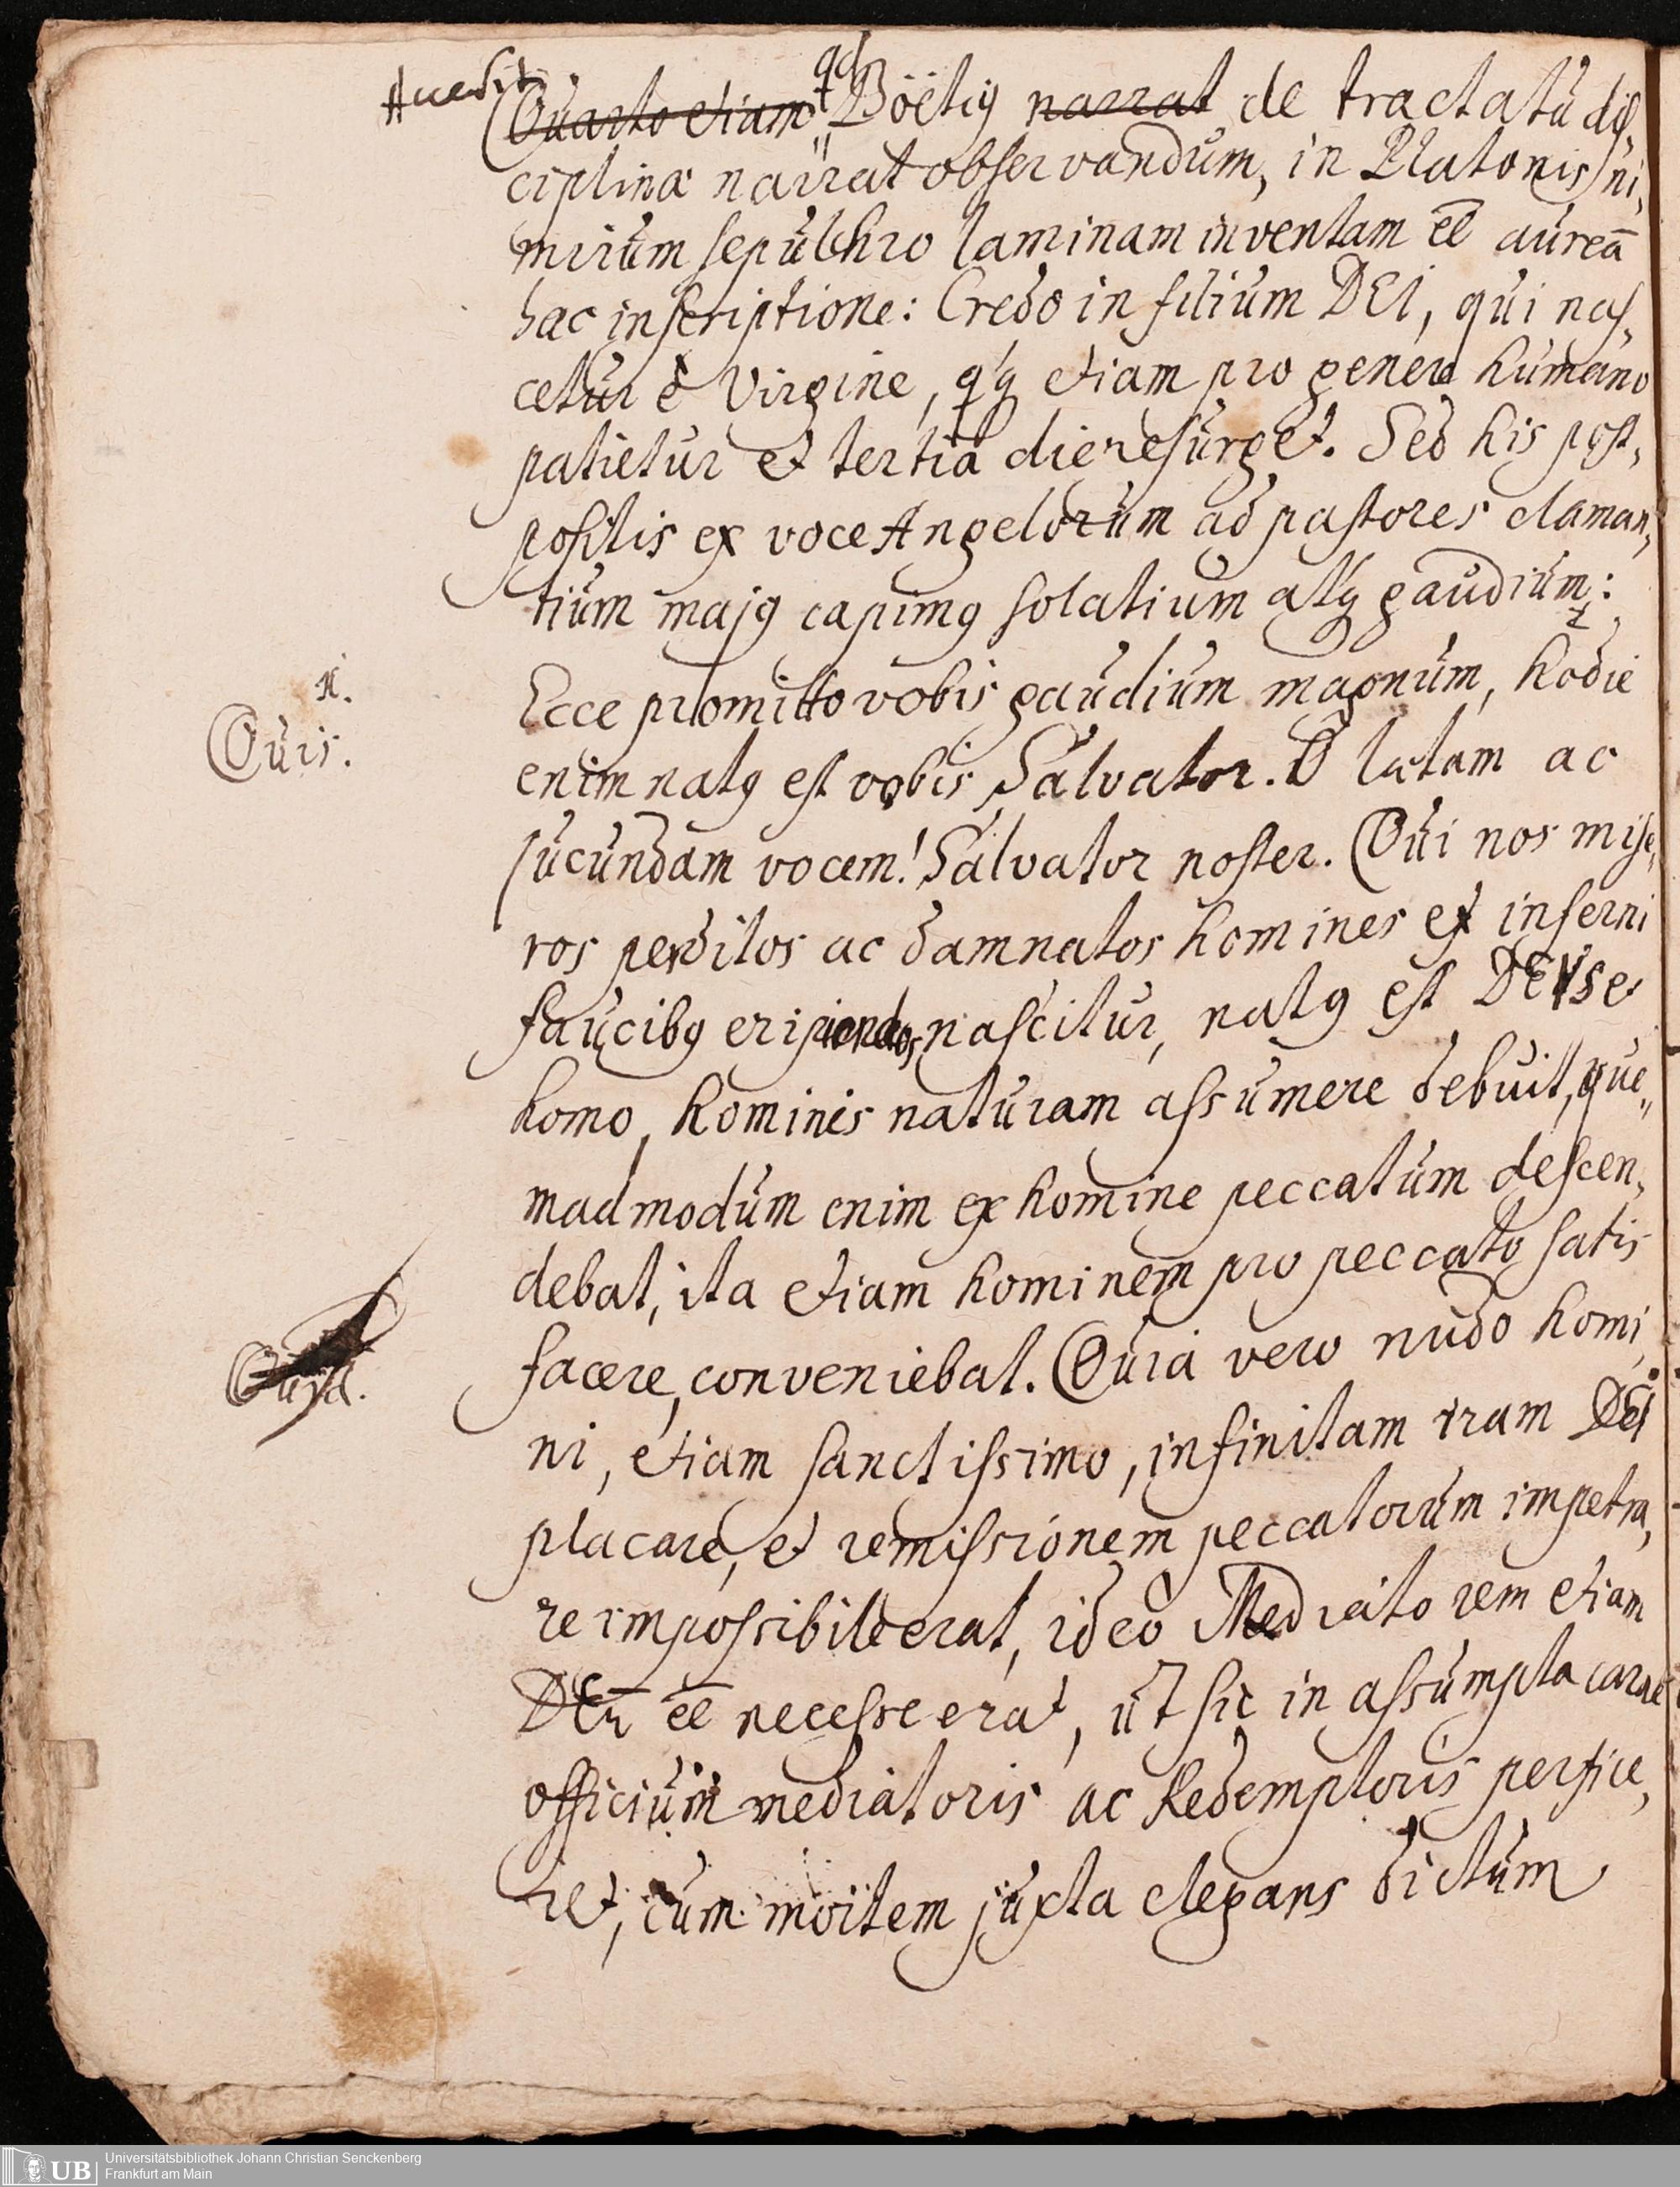 Accedit
Quarto etiam qd Böetiꝰ narrat de tractatu dis,
ciplinæ narrat observandum, in Platonis ni,
mirum sepulchro laminam inventam ēē aureā
hac inscriptione: Credo in filium DEI, qui nas,
cetur è Virgine, qꝫ etiam pro genere humano
patietur et tertia die resurget. Sed his post,
positis ex voce Angelorum ad pastores claman,
tium majꝰ capimꝰ solatium atqꝫ gaudium:
Ecce promitto vobis gaudium magnum, hodie
N.
Quis.
enim natꝰ est vobis Salvator. O lætam ac
jucundam vocem! Salvator noster. Qui nos mise,
ros perditos ac damnatos homines ex inferni
faucibꝰ eripiendos nascitur, natꝰ est DEUS e
homo, hominis naturam assumere debuit, que,,
madmodum enim ex homine peccatum descen,
debat, ita etiam hominem pro peccato satis
facere, conveniebat. Quia vero nudo homi,
Quia.
ni, etiam sanctissimo, infinitam iram DEI
placare, et remissionem peccatorum impetra,
re impossibile erat, ideo Mediatorem etiam
DEū ēē necesse erat, ut sic in assumpta carne
officium mediatoris ac Redemptoris perfice,
ret, cum mortem juxta elegans dictum
Universitätsbibliothek Johann Christian Senckenberg
UB Frankfurt am Main